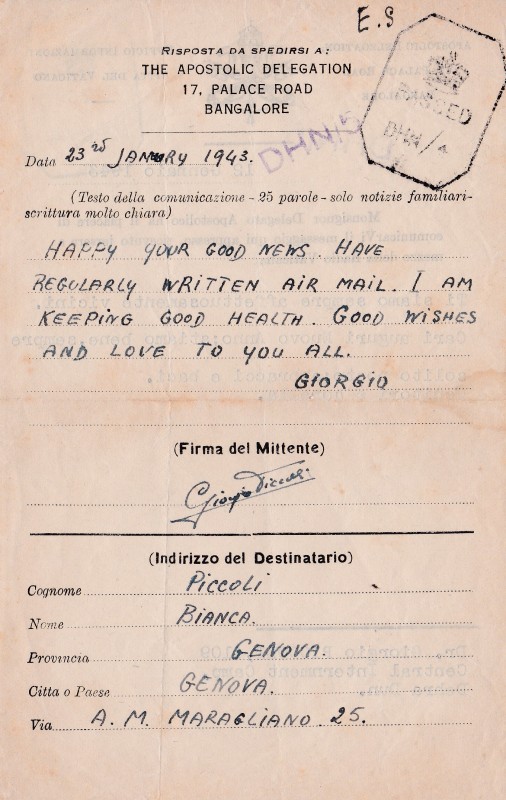 E.S
RISPOSTA DA SPEDIRSI A:
THE APOSTOLIC DELEGATION
17, PALACE ROAD
BANGALORE
PASSED
DHN/4
DHN/5
Data 23rd JANUARY 1943.
(Testo della comunicazione - 25 parole - solo notizie familiari-
scrittura molto chiara)
HAPPY YOUR GOOD NEWS. HAVE
REGULARLY WRITTEN AIR MAIL. I AM
KEEPING GOOD HEALTH. GOOD WISHES
AND LOVE TO YOU ALL.
GIORGIO
(Firma del Mittente)
Giorgio Piccoli
(Indirizzo del Destinatario)
Cognome PICCOLI
Nome BIANCA.
Provincia GENOVA.
Citta o Paese GENOVA.
Via A. M. MARAGLIANO 25.